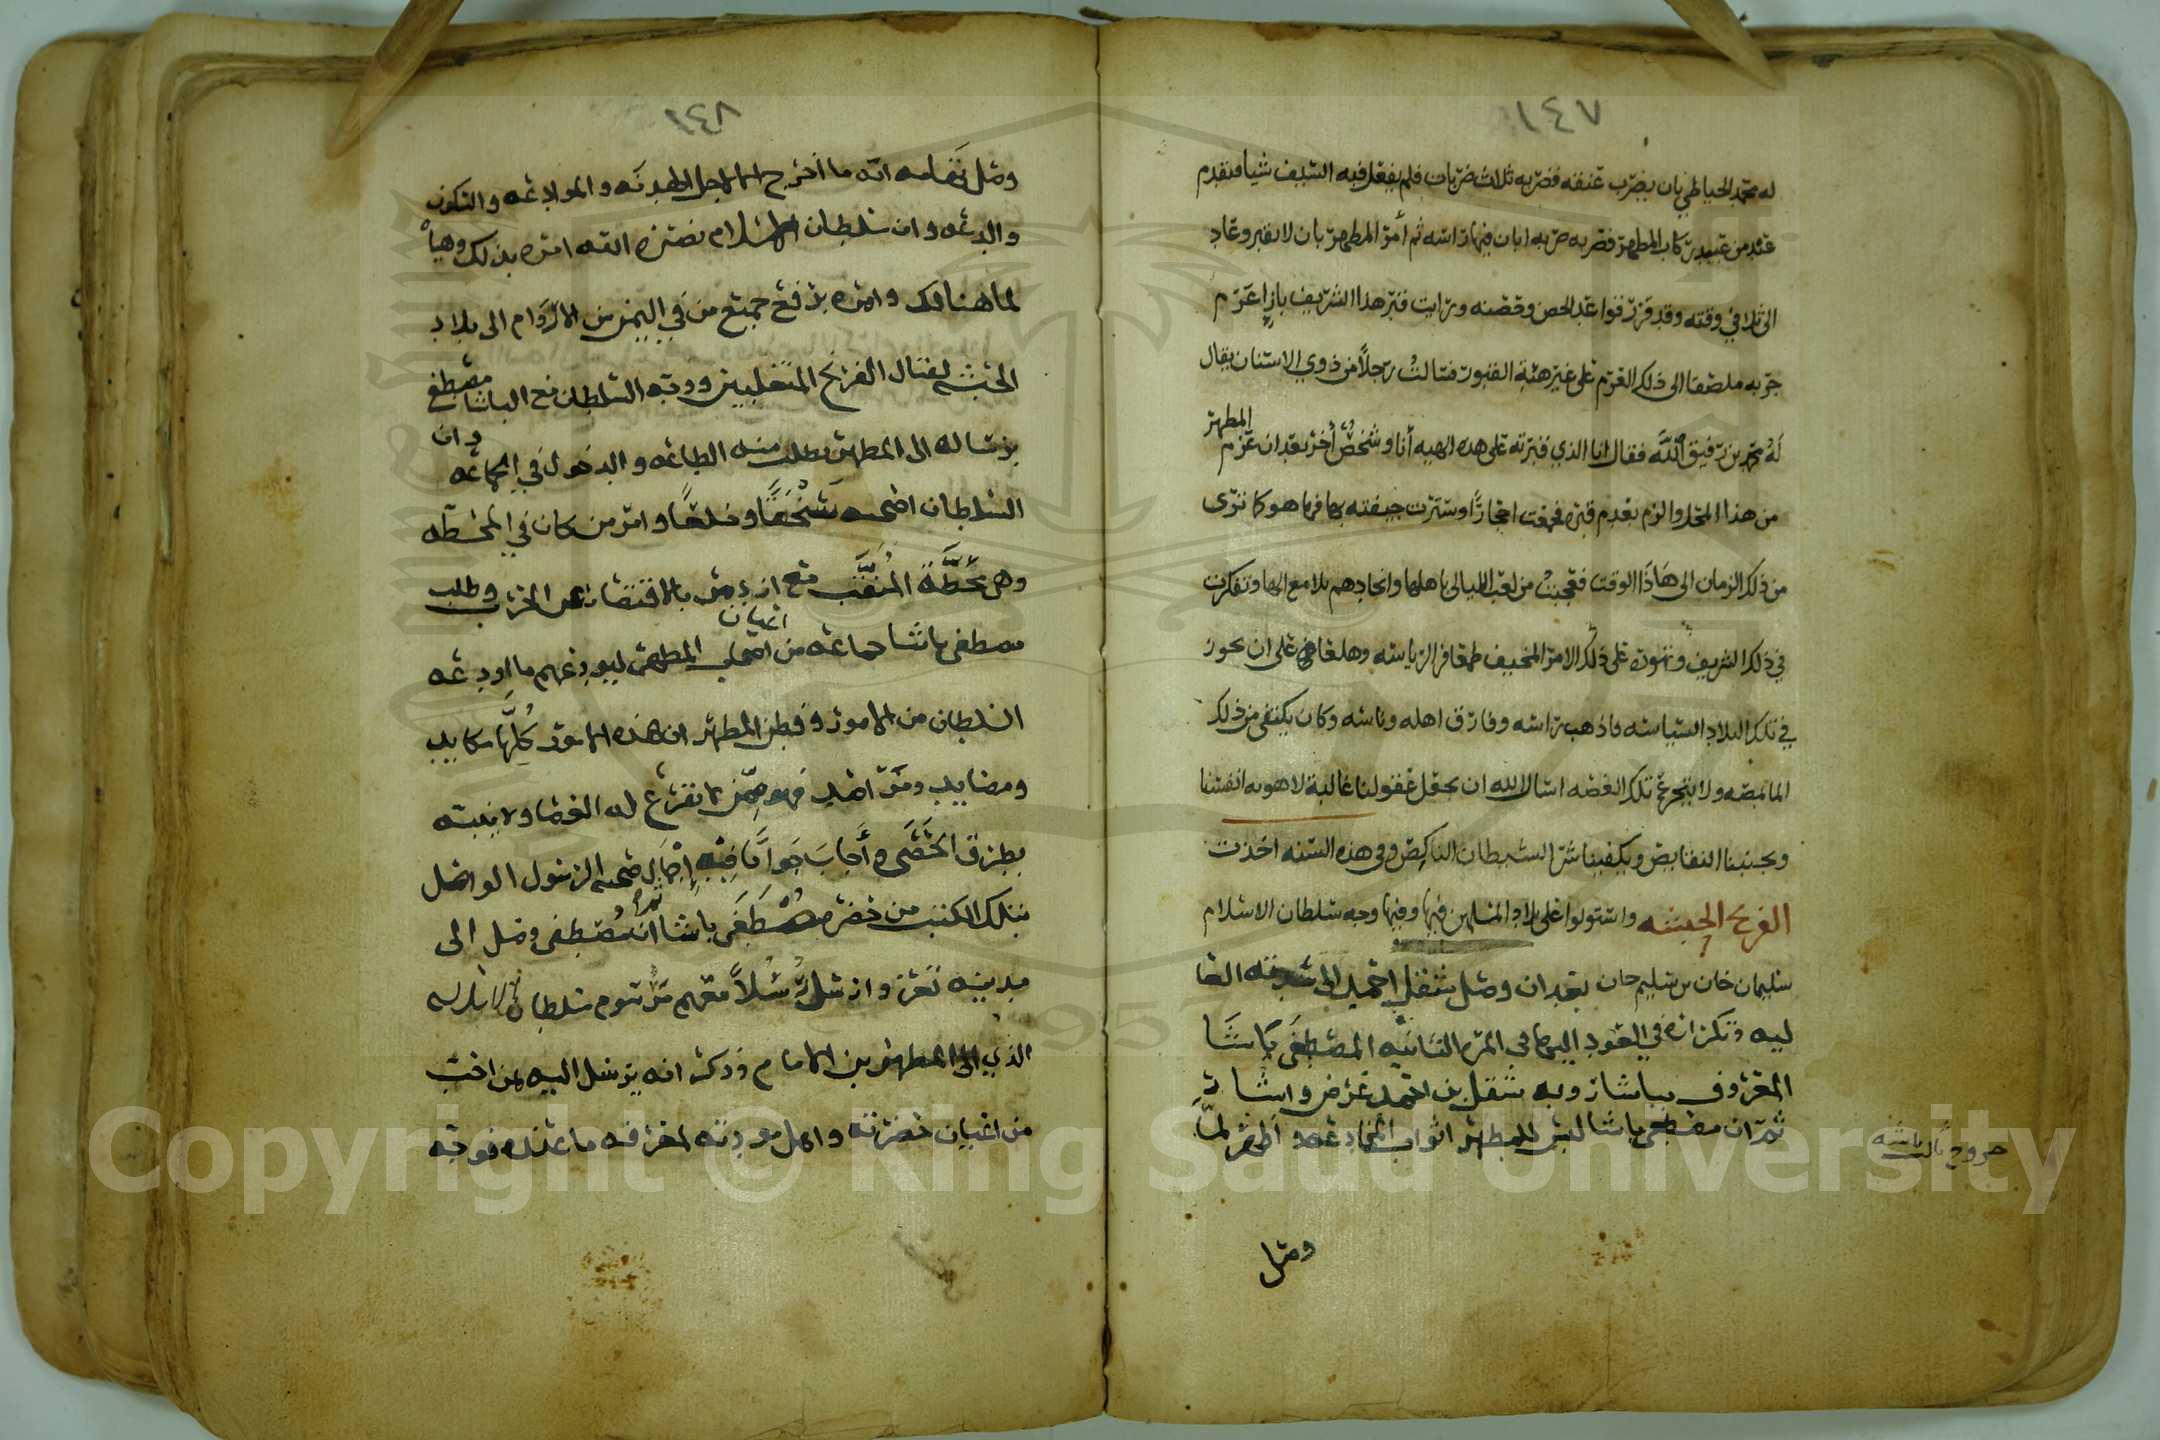 ١٤٧
له محمد الخياطي بان يضرب عنقه فضربه ثلاث ضربات فلم يفعل فيه السيف شيا فتقدم
عبد من عبيد ركاب المطهر فضربه ضربه ابان فيها راسه ثم أمر المطهر بان لا يقبر وعاد
الى ثلا في وقته وقد قرر قواعد الحصن وحصنه ورايت قبر هذا الشريف بازا عرم
جربه ملصقا الى ذلك العرم على غير هيئة القبور فسالت رجلاً من ذوي الاسنان يقال
لهُ محمد بن رفيق الله فقال انا الذي قبرته على هذه الهيه أنا وشخصٌ أخر بعد ان عزم المطهر
من هذا المحل والزم بعدم قبره فجمعت احجارًا وسترت جيفته بها فها هو كما ترى
من ذلك الزمان الى هَاذَا الوقت فعجبتْ من لعب الليالي باهلها وتفكرت
في ذلك الشريف وتهوره على ذلك الامر المخيف طمعا في الرياسه وهلعا على ان يحوز
في تلك البلاد السياسه فاذهب راسه وفارق اهله وناسه وكان يكتفي من ذلك
ولا يتجرع تلك الغصه اسال الله ان يجعل عقولنا غالبة لاهويه انفسنا
ويجنبنا النقايص ويكفينا شر الشيطان الناكص وفي هذه السنه اخذت
الفرنج الحبشه واستولوا على بلاد المسلمين فيها وفيها وجه سلطان الاسلام
سليمان خان بن سليم خان بعد ان وصل شقفل احمد الى سدته العا
ليه وتكررانه في العود اليها في المره الثانيه المصطفى باشا
المعروف بباشا زوبه شقفل بن احمد عرض واشا ر
ثم ان مصطفى باشا لبس للمطهر اثواب المخادعه واظهر لما
خروج ثالث باشه
وصل
١٤٨
وصل تهامه انه ما اخرج الا لاجل الهدنه والموادعه والسكون
والدعه وان سلطان الاسلام نصره الله امره بذلك وهيأ
لما هنالك وامره برفع جميع من في اليمن من الاروام الى بلاد
الحبشه لقتال الفرنج المتغلبين ووجه السلطان مع الباشا مصطفى
برساله الى المطهر يطلب منه الطاعه والدخول في الجماعه وان
السلطان اصحبه سَنْجَقًا وخلعًا وامر من كان في المحطه
وهي محَطَّة المُنَقَّب مع ازدمر بالاقتصار عن الحرب وطلب
مصطفى باشا جماعه من اعيان اصحاب المطهر ليودعهم ما اودعه
السلطان من الامور وفطن المطهر ان هذه الامور كُلِّهَا مكايد
ومصايد ومَرّ اصد فهو ممن لا تقرع له العصا ولا ينبه
بطرق الحَصَى وأَجابَ جَوابًا فيه إجمَال صحبه الرسول الواصل
بتلك الكتب من حضره مُصْطَفَى باشا ثم أن مُصطفى وصل الى
مدينه تعز وارسل رُسُلاً معهم مرسوم سلطان الاسلام
الذي الى المطهر بن الامام وذكر انه يرسل اليه من احب
من اعيان حضرته واهل مودته لمعرفه ما عنده فوجه